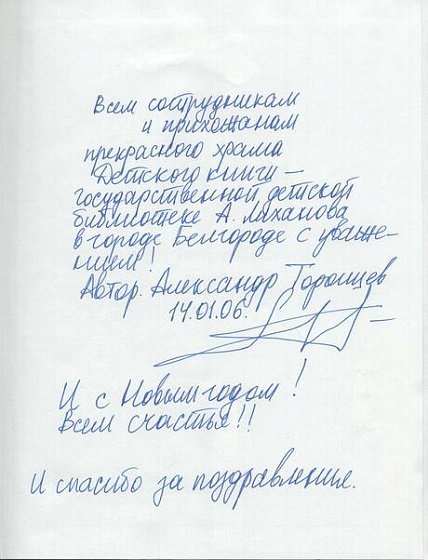 Всем сотрудникам
и прихожанам
прекрасного храма
Детского книги –
государственной детской
библиотеке А. Лиханова
в городе Белгороде с уваже-
нием!
Автор. Александр Торопцев
14.01.06.
И с Новым годом!
Всем счастья!!
И спасибо за поздравления.